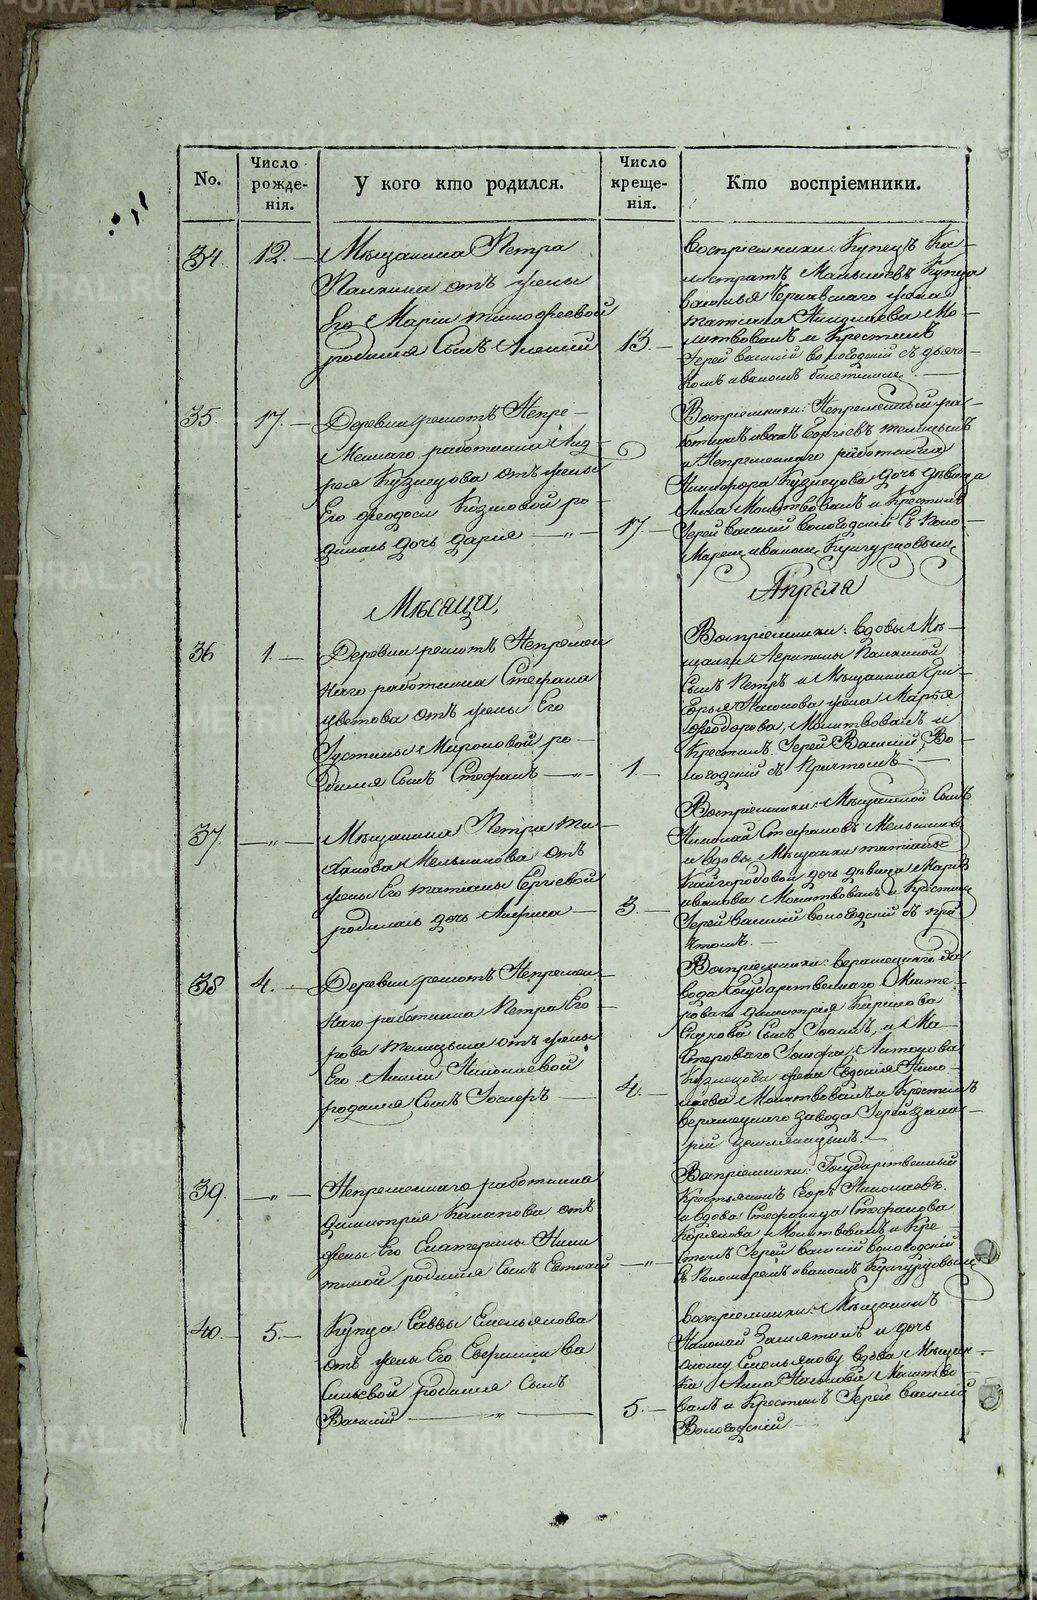 No.
Число рожденія.
У кого кто родился.
Число крещенія.
Кто воспріемники.
34.
12.
Мѣщанина Петра
Палкина отъ жены
Его Маріи Тимофеевой
родился Сынъ Алексій
13.
Воспріемники: Купецъ Ка-
листратъ Малышевъ Купца
Василья Чернавскаго жена
Татіана
Мо-
литвовалъ и Крестилъ
Іерей Василій Вологодскій съ дьячо-
комъ Иваномъ
35.
17.
Деревни решотъ Непре-
меннаго работника Анд-
рея Кузнецова отъ жены
Его Феодосьи Козмовой ро-
дилась дочь Дарья
17.
Воспріемники: Непременный ра-
ботникъ Иванъ Сергіевъ Телицынъ
и Непременнаго работника
Никифора Кузнецова дочь девица
Анна Молитвовалъ и Крестилъ
Іерей Василій Вологодскій съ Поно-
марем Иваном Кунгурцовымъ
Мѣсяца,
Апреля
36
1.
Деревни решотъ Непремен
наго работника Стефана
Цветова отъ жены Его
Устиньи Мироновой ро-
дился Сынъ Стефанъ
1.
Воспріемники: вдовы Мѣ-
щанки Агрипины Палкиной
Сынъ Петръ и Мѣщанина Гри-
горья Насонова жена Марья
Феодорова, Молитвовалъ и
Крестилъ Іерей Василій Во-
логодскій съ Причтомъ
37.
Мѣщанина Петра Ми-
хайлова Мельникова отъ
жены Его Татіаны Сергіевой
родилась дочь
3.
Воспріемники: Мѣщанской Сынъ
Николай Стефановъ Мельников
и вдовы Мѣщанки Татіаны
Кайгородовой дочь девица Марія
Иванова Молитвовалъ и Крестилъ
Іерей Василій Вологодскій съ при
чтомъ.
38
4.
Деревни решотъ Непремен
наго работника Петра Его
рова Телицына отъ жены
Его Анны Николаевой
родился Сынъ Іосифъ
4.
Воспріемники: Верхнецкаго За
вода Государственного Масте-
роваго Димитрія Кирилова
Сынъ Іоаннъ, и Ма-
стероваго Іосифа Антонова
Кузнецова жена Евдокия Нико-
лаева Молитвовалъ и Крестилъ
завода Іерей Заха-
рій Земляницынъ.
39.
Непременнаго работника
Димитрія отъ
жены Его Екатерины Ники
тиной родился Сынъ Евтихій
Воспріемники: Государственный
Крестьянинъ Егоръ Николаевъ.
и вдова Стефанида Стефанова
Молитвовалъ и Кре-
стилъ Іерей Василій Вологодскій
съ Пономаремъ Иваномъ Кунгурцовымъ
40.
5.
Купца Саввы Емельянова
отъ жены Его Евфиміи Ва
сильевой родился Сынъ
Василій
5.
Воспріемники: Мѣщанинъ
Николай Замятинъ и дочь
оному Емельянову вдова Мѣщан-
ка Анна Молитво
валъ и Крестилъ Іерей Василій
Вологодскій